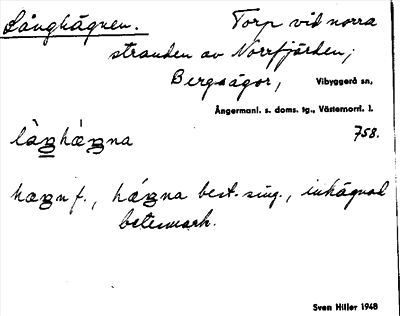 Långhägnen. Torp vid norra
stranden av Norrfjärden;
Bergsågor, Vibyggerå sn,
Ångermanl. s. doms. tg., Västernorrl. l.
758.
hæᶇn f., best. sing., inhägnad
betesmark.
Sven Hiller 1948